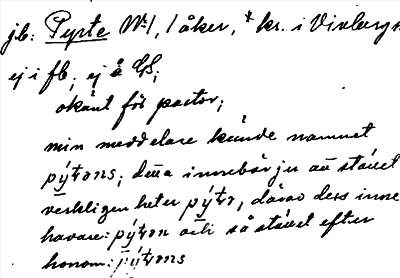 jb: Pyrte № 1, 1 åker, * kr. i Vixbergs
ej i fb; ej å GS;
okänt för pastor;
min meddelare kände namnet
pýtons; detta innebär ju att stället
verkligen heter pýtr, därav dess inne
havare: pýtrn och så stället efter
honom: pýtrns